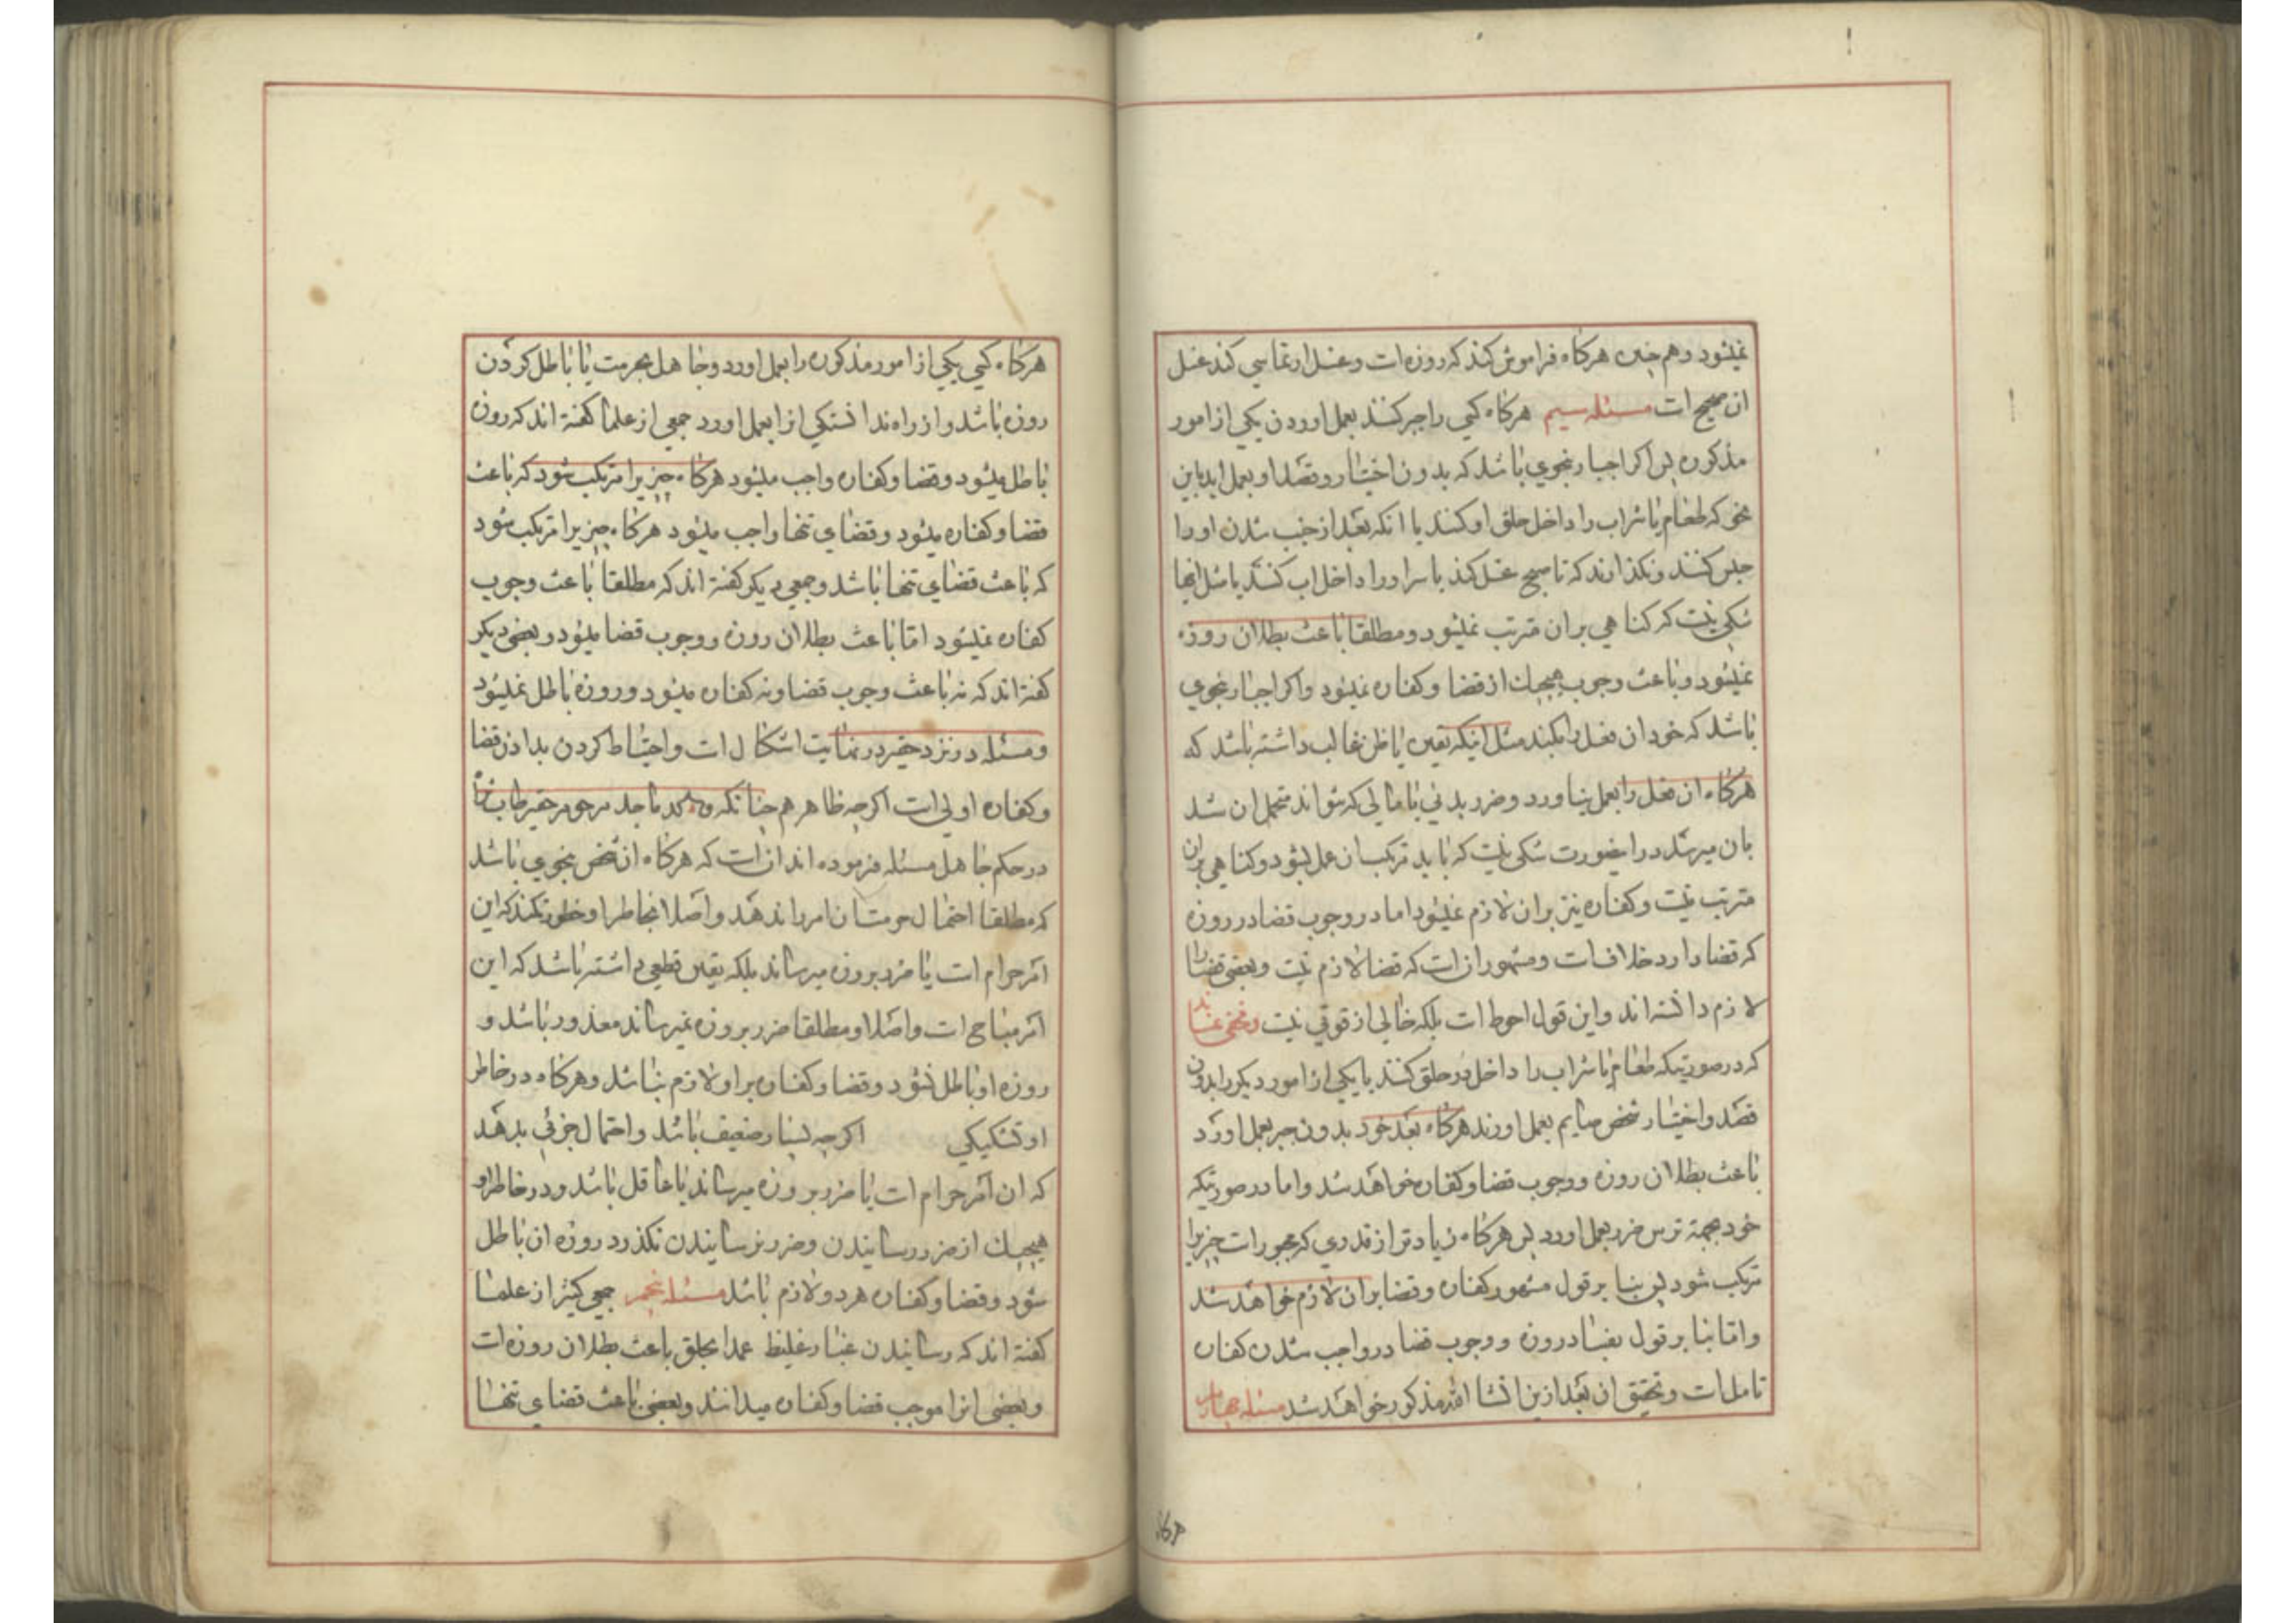 نمیشود و هم چنین هرکاه فراموش کند که روزه است و غسل ارتماسی کند غسل
ان صحیح است مسئله سیم هرکاه کسی را جبر کنند بعمل اوردن یکی از امور
مذکوره پس اکر اجبار بنحوی باشد که بدون اختیار و قصد او بعمل اید باین
نحو که طعام یا شراب را داخل حلق او کنند یا انکه بعد از جنب شدن او را
حبس کنند و نکذارند که تا صبح غسل کند یا سر او را داخل اب کنند یا مثل انها
شکی نیست که کناهی بر ان مترتب نمیشود و مطلقا باعث بطلان روزه
نمیشود و باعث وجوب هیچیک از قضا و کفاره نمیشود و اکر اجبار بنحوی
باشد که خود ان فعل را بکند مثل اینکه یقین یا ظن غالب داشته باشد که
هرکاه ان فعل را بعمل نیاورد و ضرر بدنی یا مالی که نتواند متحمل ان شد
بان میرسد در اینصورت شکی نیست که باید مرتکب ان عمل بشود و کناهی بر ان
مترتب نیست و کفاره نیز بر ان لازم نمیشود اما در وجوب قضا در روزه
که قضا دارد خلاف است و مشهور ان است که قضا لازم نیست و بعضی قضا را
لازم دانسته اند و این قول احوط است بلکه خالی از قوتی نیست و مخفی نماند
که در صورتیکه طعام یا شراب را داخل در حلق کنند یا یکی از امور دیکر را بدون
قصد و اختیار شخص صایم بعمل اورند هرکاه بعد خود بدون جبر بعمل اورد
باعث بطلان روزه و وجوب قضا و کفاره خواهد شد و اما در صورتیکه
خود بجهة ترس ضرر بعمل اورد پس هرکاه زیادتر از قدری که مجبور است چیزیرا
مرتکب شود پس بنا بر قول مشهور کفاره و قضا بر ان لازم خواهد شد
و اما بنا بر قول بفساد روزه و وجوب قضا در واجب شدن کفاره
تامل است و تحقیق ان بعد ازین انشا الله مذکور خواهد شد مسئله چهارم
هرکاه کسی یکی از امور مذکوره را بعمل اورد و جاهل بحرمت یا باطل کردن
روزه باشد و از راه ندانستکی انرا بعمل اورد جمعی از علما کفته اند که روزه
باطل میشود و قضا و کفاره واجب میشود هرکاه چیزیرا مرتکب شود که باعث
قضا و کفاره میشود و قضای تنها واجب میشود هرکاه چیزیرا مرتکب شود
که باعث قضای تنها باشد و جمعی دیکر کفته اند که مطلقا باعث وجوب
کفاره نمیشود اما باعث بطلان روزه و وجوب قضا میشود و بعضی دیکر
کفته اند که نه باعث وجوب قضا و نه کفاره میشود و روزه باطل نمیشود
و مسئله در نزد حقیر در نهایت اشکال است و احتیاط کردن بدادن قضا
و کفاره اولی است اکرچه ظاهر هم چنانکه والد ماجد مرحوم حقیر طاب ثراه
در حکم جاهل مسئله فرموده اند ان است که هرکاه ان شخص بنحوی باشد
که مطلقا احتمال حرمت ان امر را ندهد و اصلا بخاطر او خطور نکند که این
امر حرام است یا ضرر بروزه میرساند بلکه یقین قطعی داشته باشد که این
امر مباحی است و اصلا و مطلقا ضرر بروزه نمیرساند معذور باشد و
روزه او باطل نشود و قضا و کفاره بر او لازم نباشد و هرکاه در خاطر
او تشکیکی اکرچه بسیار ضعیف باشد و احتمال جزئی بدهد
که ان امر حرام است یا ضرر بروزه میرساند یا غافل باشد و در خاطر او
هیچیک از ضرر رسانیدن و ضرر نرسانیدن نکذرد روزه ان باطل
شود و قضا و کفاره هر دو لازم باشد مسئله پنجم جمعی کثیر از علما
کفته اند که رسانیدن غبار غلیظ عمدا بحلق باعث بطلان روزه است
و بعضی انرا موجب قضا و کفاره میدانند و بعضی باعث قضای تنها